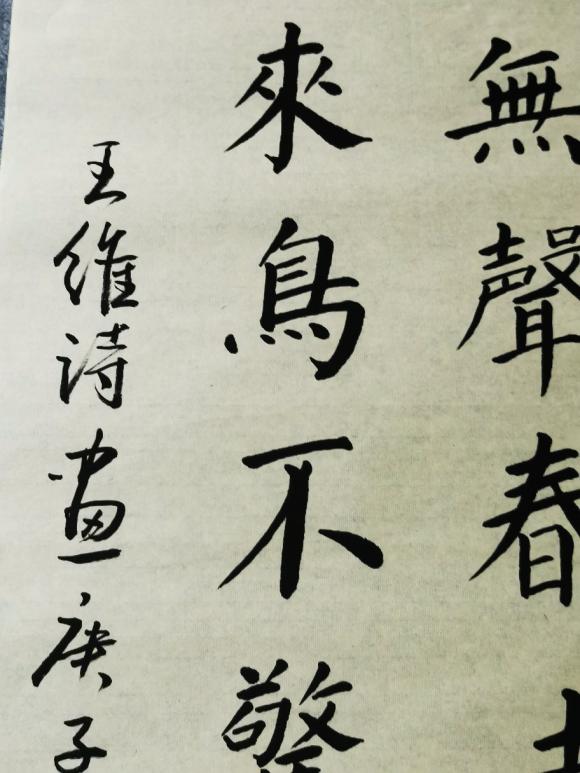 無聲春
來鳥不驚
王維诗畫庚子